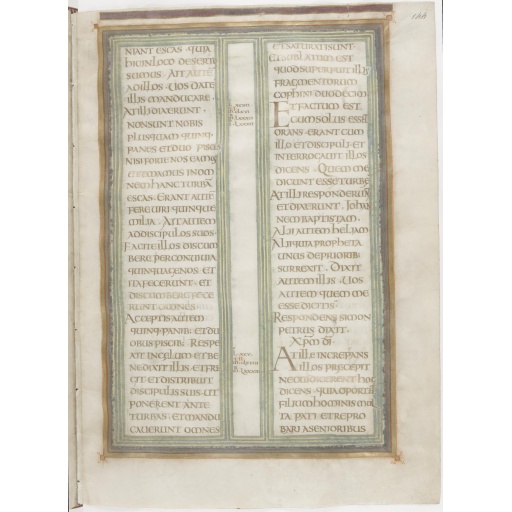 NIANT ESCAS · QUIA
HIC IN LOCO DESERTO
SUMUS · AIT AUTE
AD ILLOS · UOS DATE
ILLIS MANDUCARE ·
AT ILLI DIXERUNT ·
NON SUNT NOBIS
PLUS QUAM QUINQ
PANES ET DUO PISCES
NISI FORTE NOS EAMUS
ET EMAMUS IN OMNEM
NEM HANC TURBA
ESCAS · ERANT AUTE
FERE UIRI QUINQUE
MILIA · AIT AUTEM
AD DISCIPULOS SUOS ·
FACITE ILLOS DISCUM
BERE PER CONUIUIA
QUINQUAGENOS · ET
ITA FECERUNT · ET
DISCUMBERE FECE
RUNT OMNES
ACCEPTIS AUTEM
QUINQ PANIB · ET DU
OBUS PISCIB · RESPE
XIT IN CELUM ET BE
NEDIXIT ILLIS · ET FRE
GIT · ET DISTRIBUIT
DISCIPULIS SUIS · UT
PONERENT ANTE
TURBAS · ET MANDU
CAUERUNT OMNES
ET SATURATI SUNT ·
ET SUBLATUM EST
QUOD SUPERFUIT ILLIS
FRAGMENTORUM
COPHINI DUODECIM
ET FACTUM EST
CUM SOLUS ESSET
ORANS · ERANT CUM
ILLO ET DISCIPULI · ET
INTERROGAUIT ILLOS
DICENS · QUEM ME
DICUNT ESSE TURBE
AT ILLI RESPONDERUN
ET DIXERUNT · IOHAN
NEM BAPTISTAM ·
ALII AUTEM HELIAM
ALII QUIA PROPHETA
UNUS DE PRIORIB
SURREXIT · DIXIT
AUTEM ILLIS · UOS
AUTEM QUEM ME
ESSE DICITIS
RESPONDENS SIMON
PETRUS DIXIT ·
XPM DI ·
AT ILLE INCREPANS
ILLOS PRECEPIT
NE CUI DICERENT HOC
DICENS · QUIA OPORTET
FILIUM HOMINIS MUL
TA PATI · ET REPRO
BARI A SENIORIBUS
144